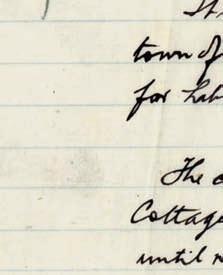 town of
for hab
The
Cottage
until